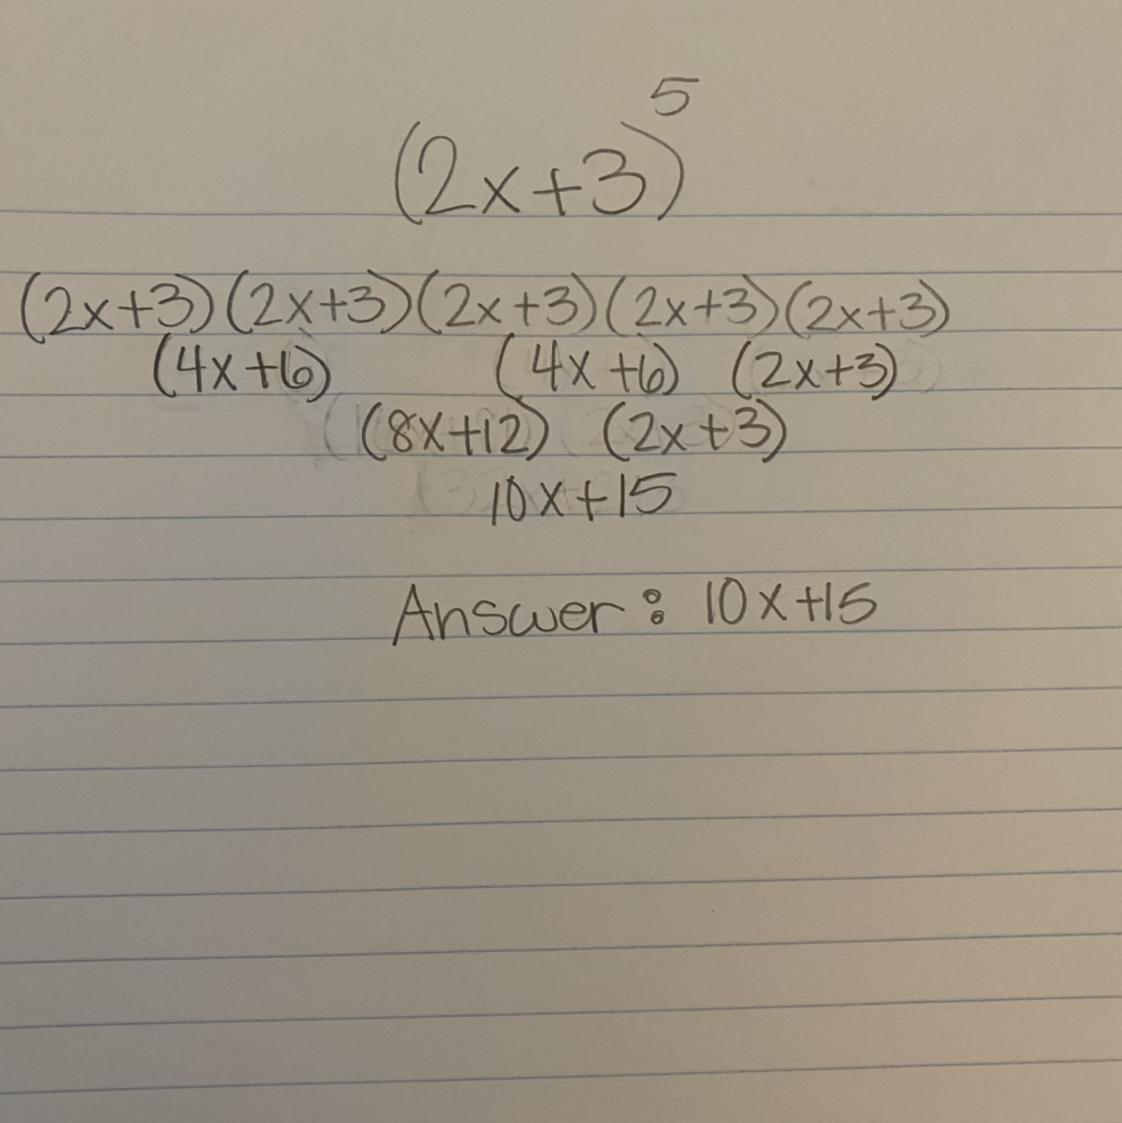 (2x+3)⁵
(2x+3)(2x+3)(2x+3)(2x+3)(2x+3)
(4x+6) (4x+6) (2x+3)
(8x+12) (2x+3)
10x+15
Answer: 10x+15